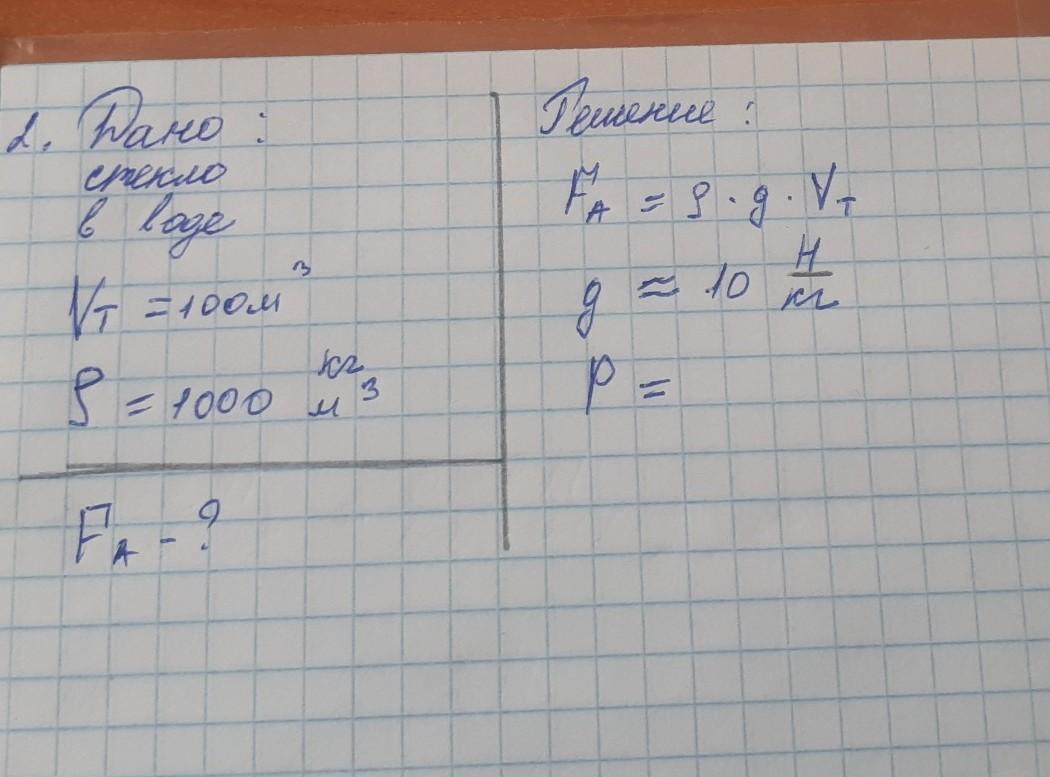 2. Дано:
стекло
в воде
Vт = 100м³
ρ = 1000 кг/м³
FА - ?
Решение:
FА = ρ · g · Vт
g ≈ 10 Н/кг
P =